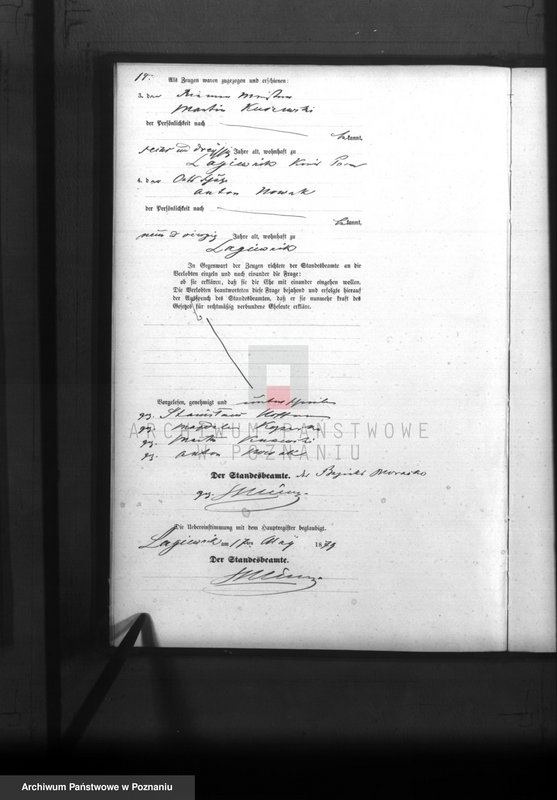 14.
Als Zeugen waren zugezogen und erschienen:
3. der
Martin Kusewski
der Persönlichkeit nach
bekannt,
sechs und dreißig Jahre alt, wohnhaft zu
Lagiewnik Kreis
4. der
Anton Nowak
der Persönlichkeit nach
bekannt,
neun u vierzig Jahre alt, wohnhaft zu
Lagiewnik
In Gegenwart der Zeugen richtete der Standesbeamte an die
Verlobten einzeln und nach einander die Frage:
ob sie erklären, daß sie die Ehe mit einander eingehen wollen.
Die Verlobten beantworteten diese Frage bejahend und erfolgte hierauf
der Ausspruch des Standesbeamten, daß er sie nunmehr kraft des
Gesetzes für rechtmäßig verbundene Eheleute erkläre.
Vorgelesen, genehmigt und unterschrieben
gez. Stanislaw Hoffmann
gez.
gez. Martin Kusewski
gez. Anton Nowak
ARCHIWUM PAŃSTWOWE
W POZNANIU
Der Standesbeamte. des Bezirks
gez.
Die Uebereinstimmung mit dem Hauptregister beglaubigt.
Lagiewnik am 17ten May 1879
Der Standesbeamte.
Archiwum Państwowe w Poznaniu